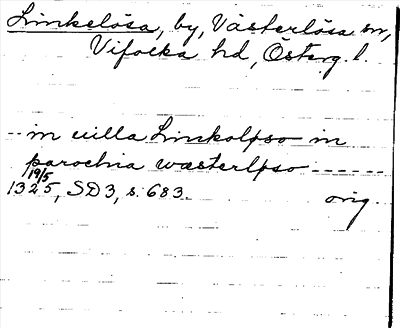 Linkelösa, by, Västerlösa sn,
Vifolka hd, Österg. l.
-- in uilla Linkolpso in
parochia wæsterlpso ------
19/5
1325, SD3, s. 683. orig.